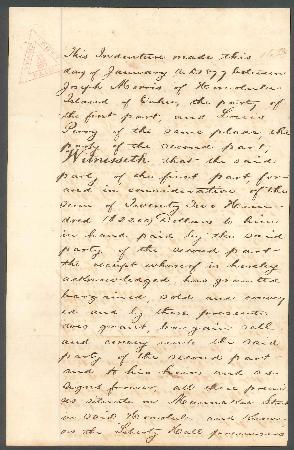 This Indenture made this
day of January A.D. 1877 between
Joseph Morris of Honolulu
Island of Oahu, the party of
the first part, and
Perry of the same place, the
party of the second part,
Witnesseth that the said
party of the first part, for
and in consideration of the
sum of Twenty Two Hun-
dred Dollars to him
in hand paid by the said
party of the second part
the receipt whereof is hereby
acknowledged has granted
bargained, sold and convey
ed and by these presents
does grant, bargain sell
and convey unto the said
party of the second part
and to his heirs and as-
signs forever, all these premi
ses situate on Street
in said Honolulu and known
as the Liberty Hall premises